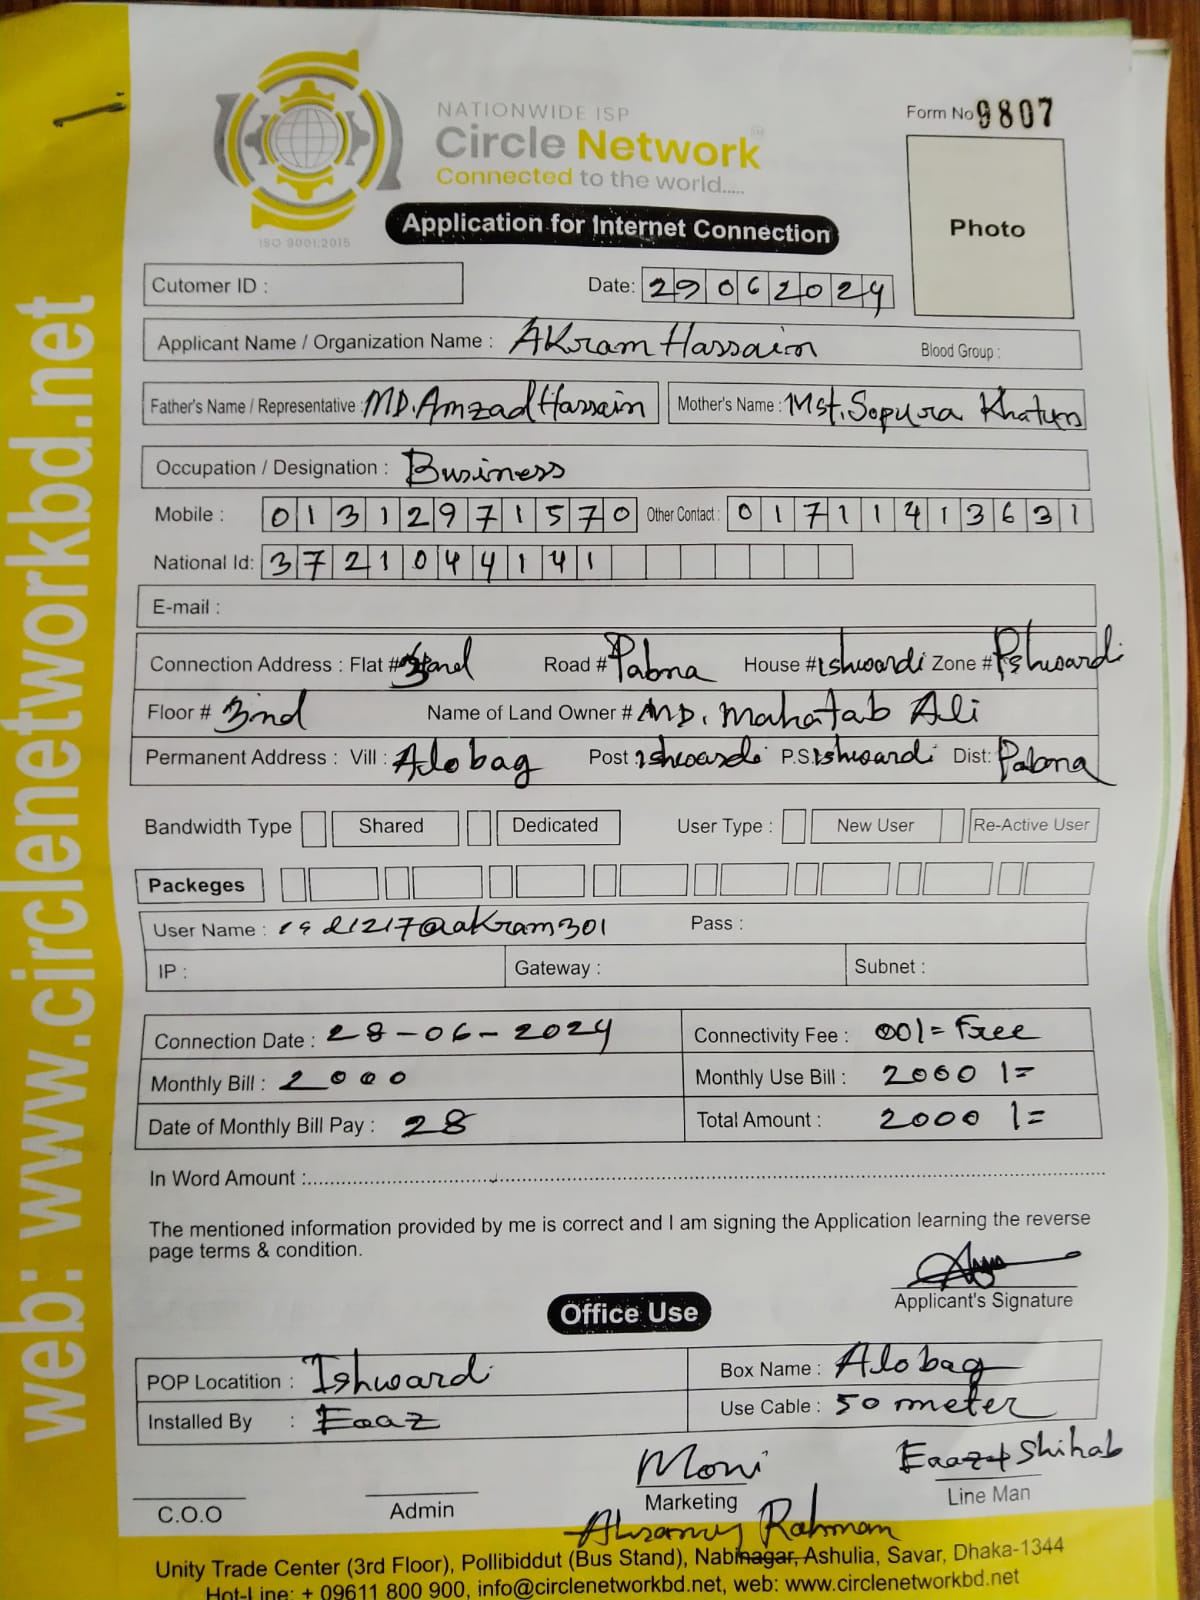 web: www.circlenetworkbd.net
NATIONWIDE ISP
Circle Network
Connected to the world.....
ISO 9001:2015
Form No 9807
Photo
Application for Internet Connection
Cutomer ID :
Date: 29062024
Applicant Name / Organization Name : AKram Hassain
Blood Group :
Father's Name / Representative : MD. Amzad Hassain
Mother's Name : Mst. Sopura Khatun
Occupation / Designation : Business
Mobile : 01312971570 Other Contact : 01711413631
National Id: 3721044141
E-mail :
Connection Address : Flat # Road # Pabna House # ishwardi Zone # Ishwardi
Floor # 3nd Name of Land Owner # MD. Mahatab Ali
Permanent Address : Vill : Alobag Post ishwardi P.S. ishwardi Dist: Pabna
Bandwidth Type Shared Dedicated User Type : New User Re-Active User
Packeges
User Name : @akram301 Pass :
IP : Gateway : Subnet :
Connection Date : 28-06-2024 Connectivity Fee : 00/= Free
Monthly Bill : 2000 Monthly Use Bill : 2000/=
Date of Monthly Bill Pay : 28 Total Amount : 2000/=
In Word Amount :
The mentioned information provided by me is correct and I am signing the Application learning the reverse
page terms & condition.
Applicant's Signature
Office Use
POP Locatition : Ishwardi Box Name : Alobag
Installed By : Eaaz Use Cable : 50 meter
Moni Eaaz + Shihab
C.O.O Admin Marketing Line Man
Rahman
Unity Trade Center (3rd Floor), Pollibiddut (Bus Stand), Nabinagar, Ashulia, Savar, Dhaka-1344
Hot-Line: + 09611 800 900, info@circlenetworkbd.net, web: www.circlenetworkbd.net